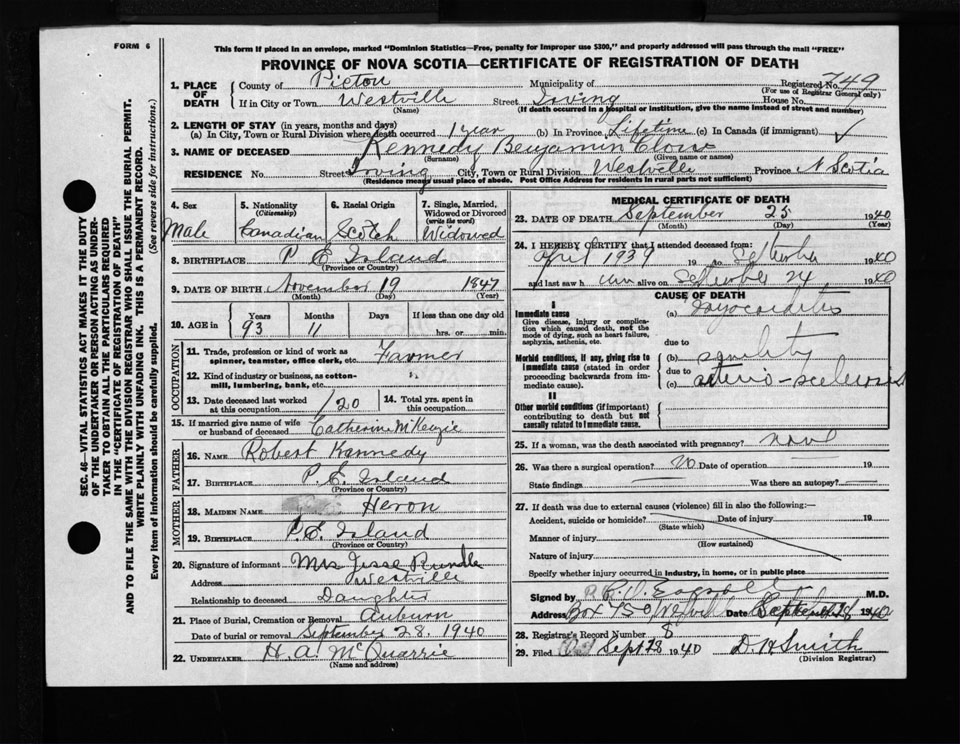 FORM 6
This form if placed in an envelope, marked "Dominion Statistics—Free, penalty for improper use $300," and properly addressed will pass through the mail "FREE"
PROVINCE OF NOVA SCOTIA—CERTIFICATE OF REGISTRATION OF DEATH
SEC. 46—VITAL STATISTICS ACT MAKES IT THE DUTY
OF THE UNDERTAKER OR PERSON ACTING AS UNDER-
TAKER TO OBTAIN ALL THE PARTICULARS REQUIRED
IN THE "CERTIFICATE OF REGISTRATION OF DEATH"
AND TO FILE THE SAME WITH THE DIVISION REGISTRAR WHO SHALL ISSUE THE BURIAL PERMIT.
WRITE PLAINLY WITH UNFADING INK. THIS IS A PERMANENT RECORD.
Every item of information should be carefully supplied. (See reverse side for instructions.)
1. PLACE OF DEATH County of Pictou Municipality of Registered No. 749
(For use of Registrar General only)
If in City or Town Westville Street Irving House No.
(Name) (If death occurred in a hospital or institution, give the name instead of street and number)
2. LENGTH OF STAY (in years, months and days)
(a) In City, Town or Rural Division where death occurred 1 year (b) In Province Lifetime (c) In Canada (if immigrant) ✓
3. NAME OF DECEASED Kennedy Benjamin
(Surname) (Given name or names)
RESIDENCE No. Street Irving City, Town or Rural Division Westville Province N Scotia
(Residence means usual place of abode. Post Office Address for residents in rural parts not sufficient)
4. Sex Male
5. Nationality (Citizenship) Canadian
6. Racial Origin Scotch
7. Single, Married, Widowed or Divorced (write the word) Widowed
8. BIRTHPLACE P E Island
(Province or Country)
9. DATE OF BIRTH November 19 1847
(Month) (Day) (Year)
10. AGE in Years 93 Months 11 Days If less than one day old hrs. or min.
OCCUPATION
11. Trade, profession or kind of work as spinner, teamster, office clerk, etc. Farmer
12. Kind of industry or business, as cotton-mill, lumbering, bank, etc. "
13. Date deceased last worked at this occupation 1920 14. Total yrs. spent in this occupation
15. If married give name of wife or husband of deceased Catherine McKenzie
FATHER
16. NAME Robert Kennedy
17. BIRTHPLACE P. E. Island
(Province or Country)
MOTHER
18. MAIDEN NAME Heron
19. BIRTHPLACE P E Island
(Province or Country)
20. Signature of informant Mrs Jesse Rundle
Address Westville
Relationship to deceased Daughter
21. Place of Burial, Cremation or Removal Auburn
Date of burial or removal September 28. 1940
22. UNDERTAKER H. A. McQuarrie
(Name and address)
MEDICAL CERTIFICATE OF DEATH
23. DATE OF DEATH September 25 1940
(Month) (Day) (Year)
24. I HEREBY CERTIFY that I attended deceased from:
April 1939 19 to September 1940
and last saw h im on September 24 1940
CAUSE OF DEATH
I
Immediate cause
Give disease, injury or complication which caused death, not the mode of dying, such as heart failure, asphyxia, asthenia, etc.
(a) Myocarditis
due to
Morbid conditions, if any, giving rise to immediate cause (stated in order proceeding backwards from immediate cause).
(b) senility
due to
(c) arterio-sclerosis
II
Other morbid conditions (if important) contributing to death but not causally related to immediate cause.
25. If a woman, was the death associated with pregnancy?
26. Was there a surgical operation? No Date of operation 19
State findings Was there an autopsy?
27. If death was due to external causes (violence) fill in also the following:—
Accident, suicide or homicide? Date of injury 19
(State which)
Manner of injury
(How sustained)
Nature of injury
Specify whether injury occurred in industry, in home, or in public place
Signed by M.D.
Address Box 750 Westville Date Sept 28 1940
28. Registrar's Record Number 8
29. Filed Sept 28 1940 D H Smith
(Division Registrar)